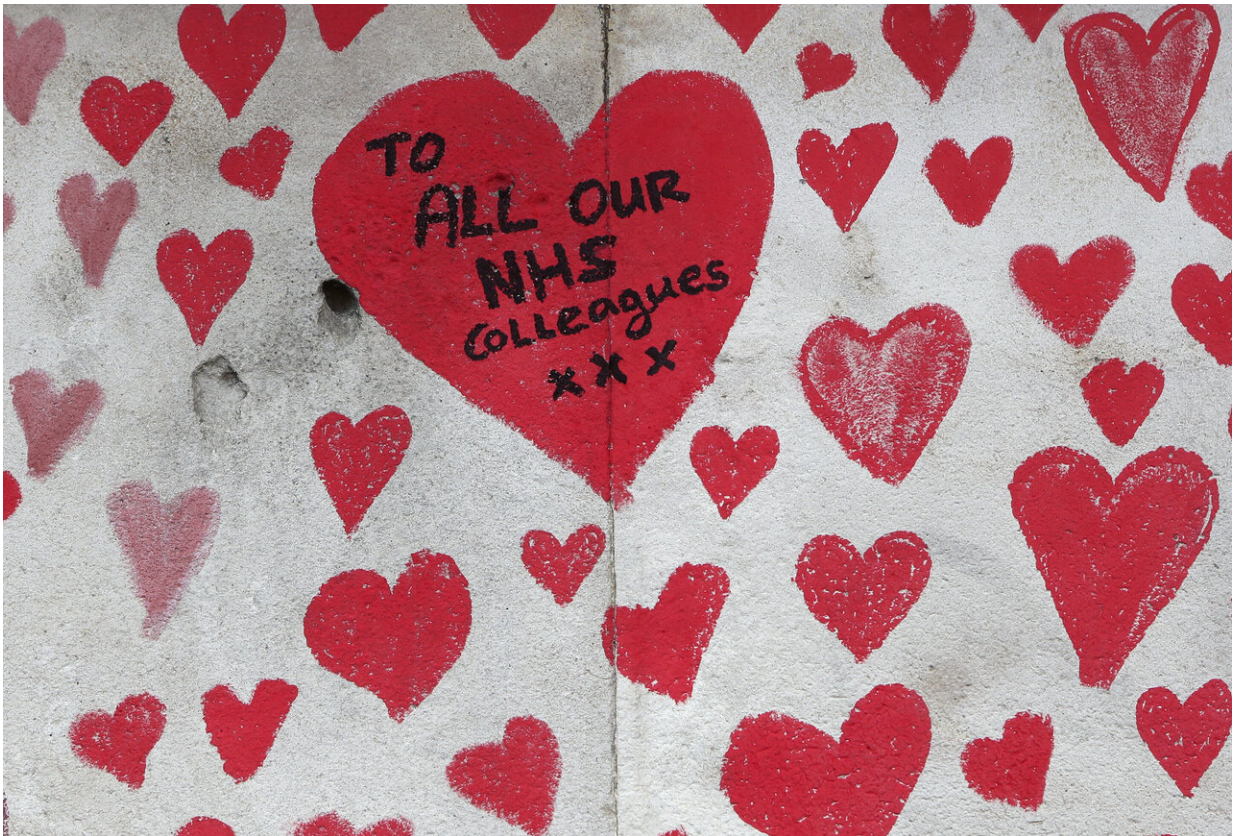 TO
ALL OUR
NHS
Colleagues
xxx